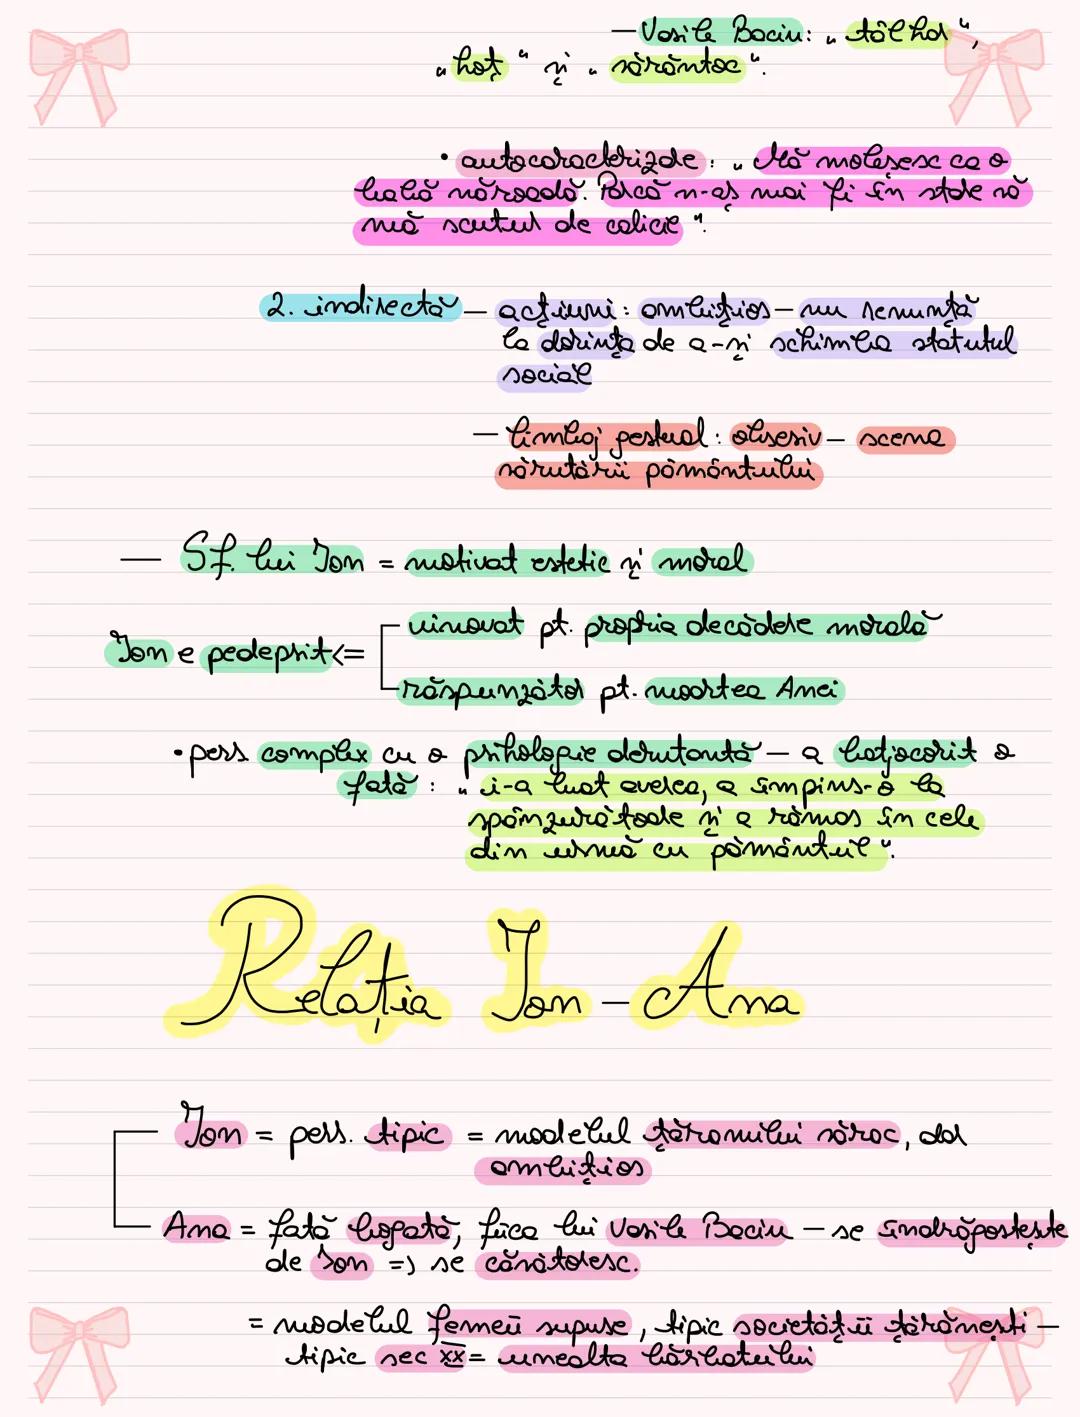 — Vasile Baciu: „tâlhar",
„hoț" și „sărăntoc".
• autocaracterizare: „Mă moleșesc ca o
babă năroadă. Parcă n-aș mai fi în stare să
mă scutur de calicie".
2. indirectă — acțiuni: ambițios — nu renunță
la dorința de a-și schimba statutul
social
— limbaj gestual: obsesiv — scena
sărutării pământului
— Sf. lui Ion = motivat estetic și moral
vinovat pt. propria decădere morală
Ion e pedepsit <=
răspunzător pt. moartea Anei
• pers complex cu o psihologie derutantă — a batjocorit o
fată: „i-a luat averea, a împins-o la
spânzurătoare și a rămas în cele
din urmă cu pământul".
Relația Ion - Ana
Ion = pers. tipic = modelul țăranului sărac, dar
ambițios
Ana = fată bogată, fiica lui Vasile Baciu — se îndrăgostește
de Ion => se căsătoresc.
= modelul femeii supuse, tipic societății țărănești —
tipic sec XX = unealta bărbatului